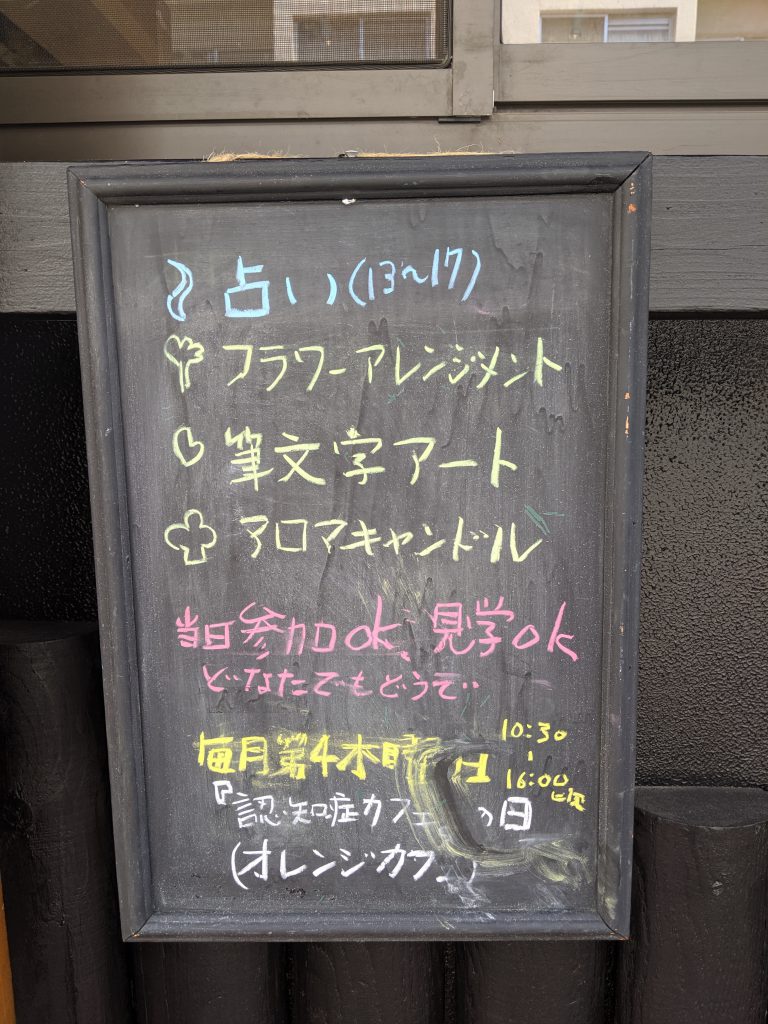 占い(13~17)
フラワーアレンジメント
筆文字アート
アロマキャンドル
当日参加ok、見学ok
どなたでもどうぞ
毎月第4木曜 日 10:30
~
16:00
『認知症カフェ の日
(オレンジカフェ)